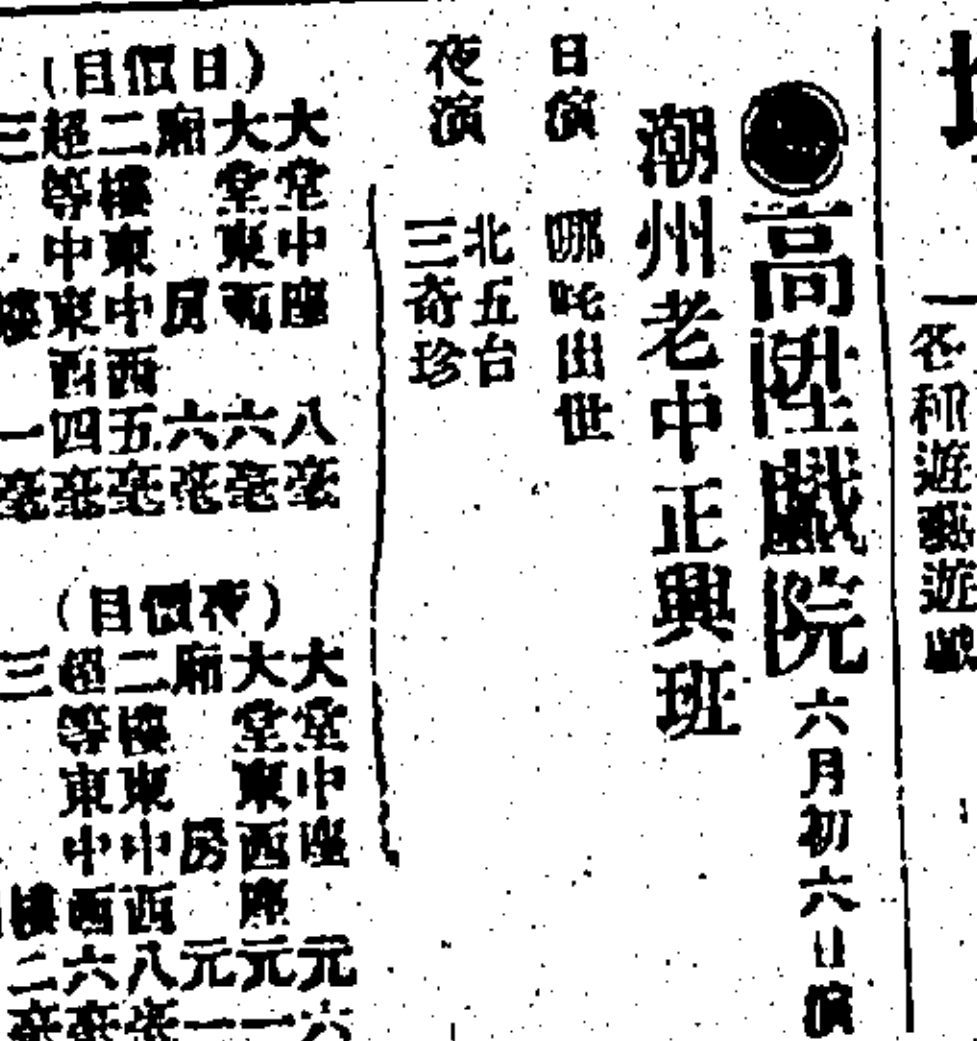 各種遊藝遊戲
高陞戲院 六月初六日演
潮州老中正興班
日演 哪吒出世
夜演 北五台
三奇珍
(日價目)
大堂中座 八毫
大堂東西 六毫
廂房 六毫
二樓東中西 五毫
超等中東西 四毫
三樓 一毫
(夜價目)
大堂中座 元六
大堂東西座 元一
廂房 元一
二樓東中西 八毫
超等東中西 六毫
三樓 二毫